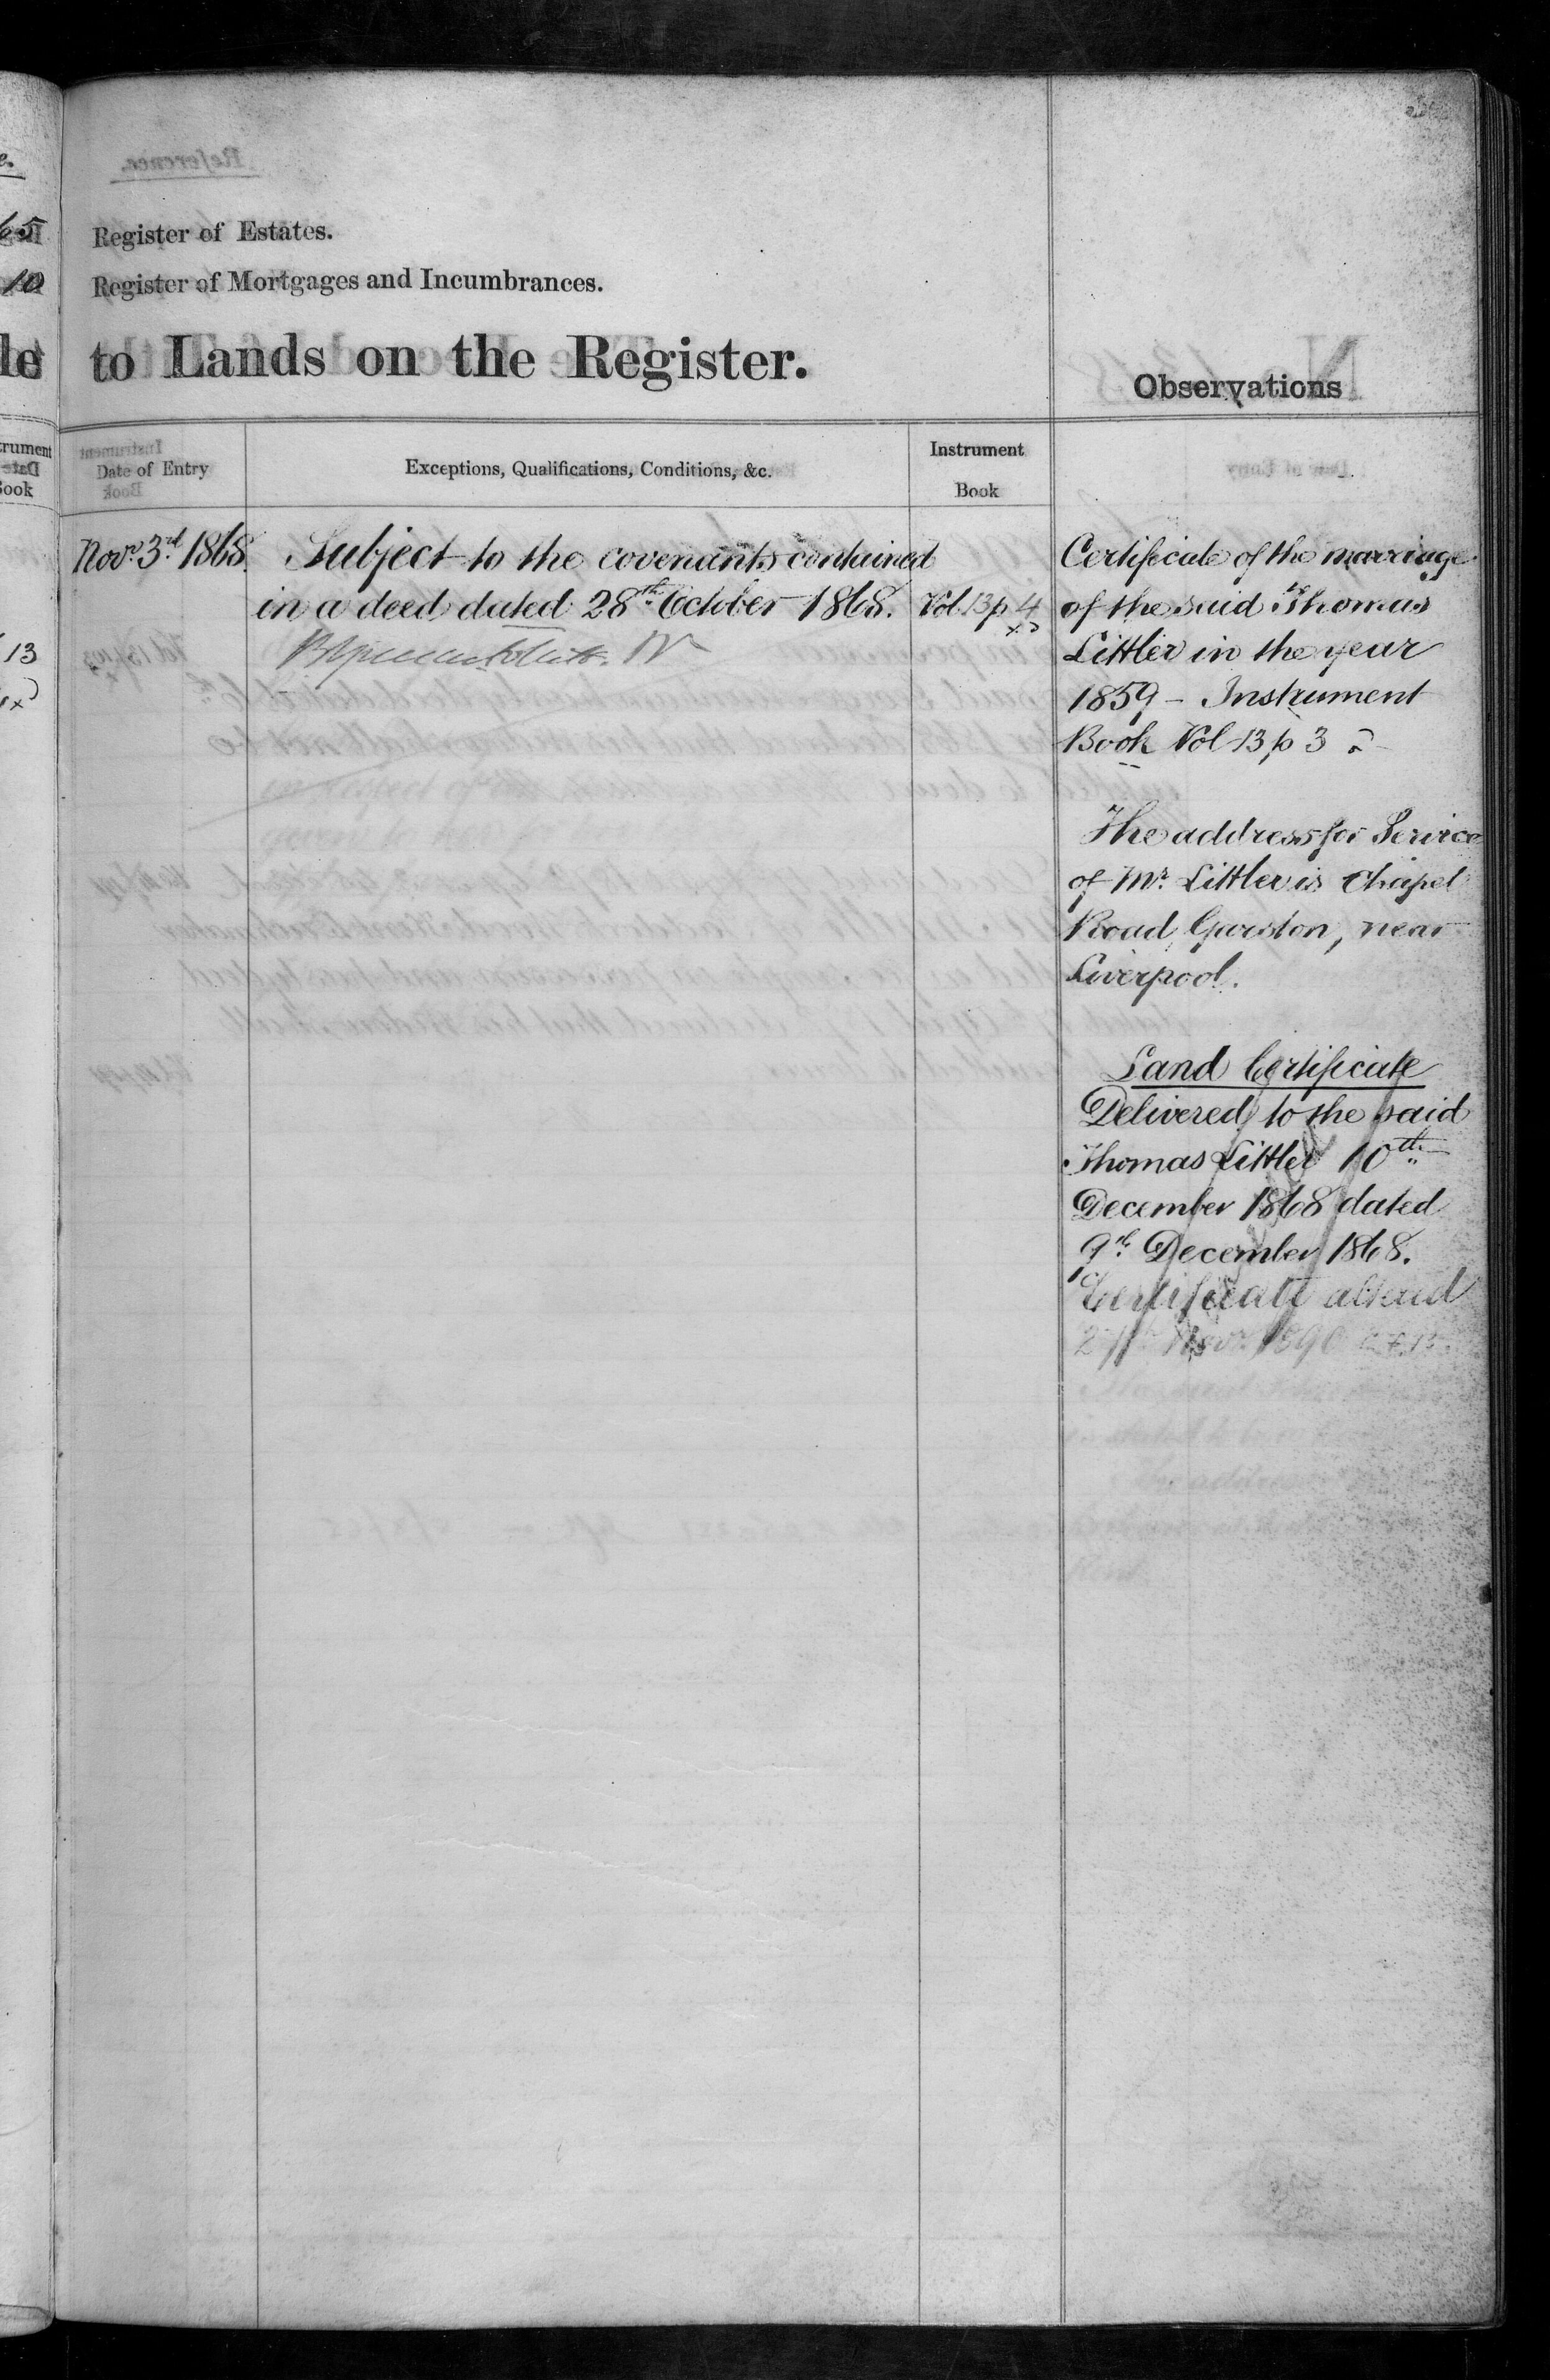 Register of Estates.
Register of Mortgages and Incumbrances.
to Lands on the Register.
Observations
Date of Entry
Exceptions, Qualifications, Conditions, &c.
Instrument
Book
Novr. 3rd 1868.
Subject to the covenants contained
in a deed dated 28th October 1868.
Vol. 13 p 4
Certificate of the marriage
of the said Thomas
Littler in the year
1859 - Instrument
Book Vol 13 p 3
The address for Service
of Mr. Littler is Chapel
Road Garston, near
Liverpool.
Land Certificate
Delivered to the said
Thomas Littler 10th
December 1868 dated
9th December 1868.
Certificate altered
Novr. 1890
65
10
le
trument
Book
13